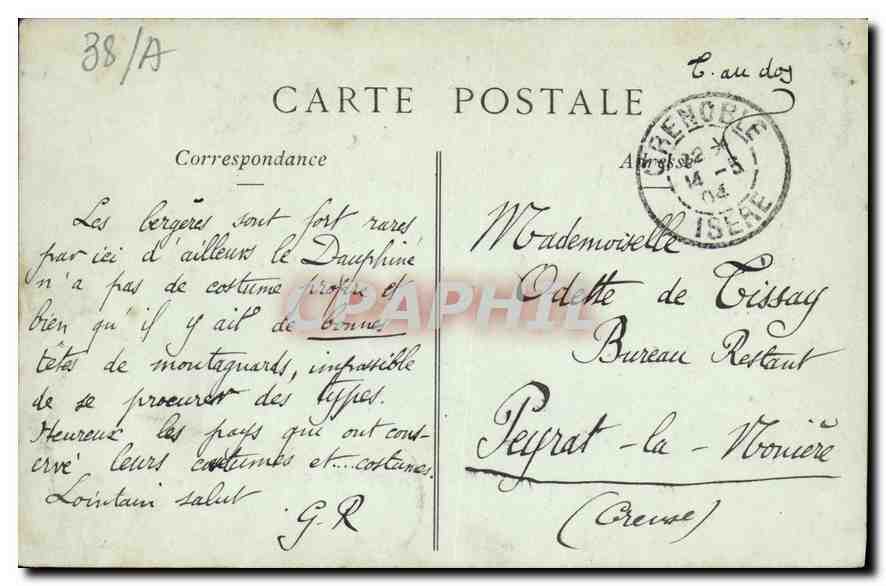 38/A
T. au dos
CARTE POSTALE
Correspondance
Adresse
GRENOBLE
22
14 -5
04
ISERE
Les bergères sont fort rares
par ici d'ailleurs le Dauphiné
n'a pas de costume propre et
bien qu'il y ait de bonnes
têtes de montagnards, impossible
de se procurer des types.
Heureux les pays qui ont cons-
ervé leurs coutumes et.... costumes.
Lointain salut
G-R
Mademoiselle
Odette de Tissay
Bureau Restant
Peyrat-la-Nonière
(Creuse)
CPAPHIL